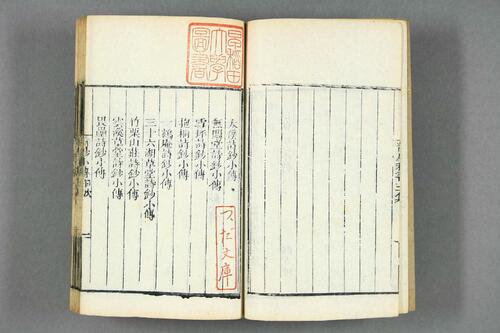 早稲田
大學
圖書
太𨿅詩鈔小傳
無聞堂詩鈔小傳
雪坪詩鈔小傳
抱桐詩鈔小傳
一鶴庵詩鈔小傳
三十六湖草堂詩鈔小傳
竹栗山莊詩鈔小傳
雲溪草堂詩鈔小傳
畏壘詩鈔小傳
つだ文庫